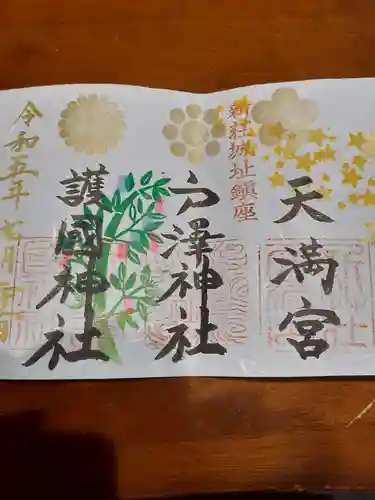 新荘城址鎮座
天満宮
戸澤神社
護國神社
令和五年七月